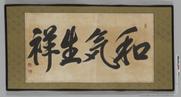 和気生祥